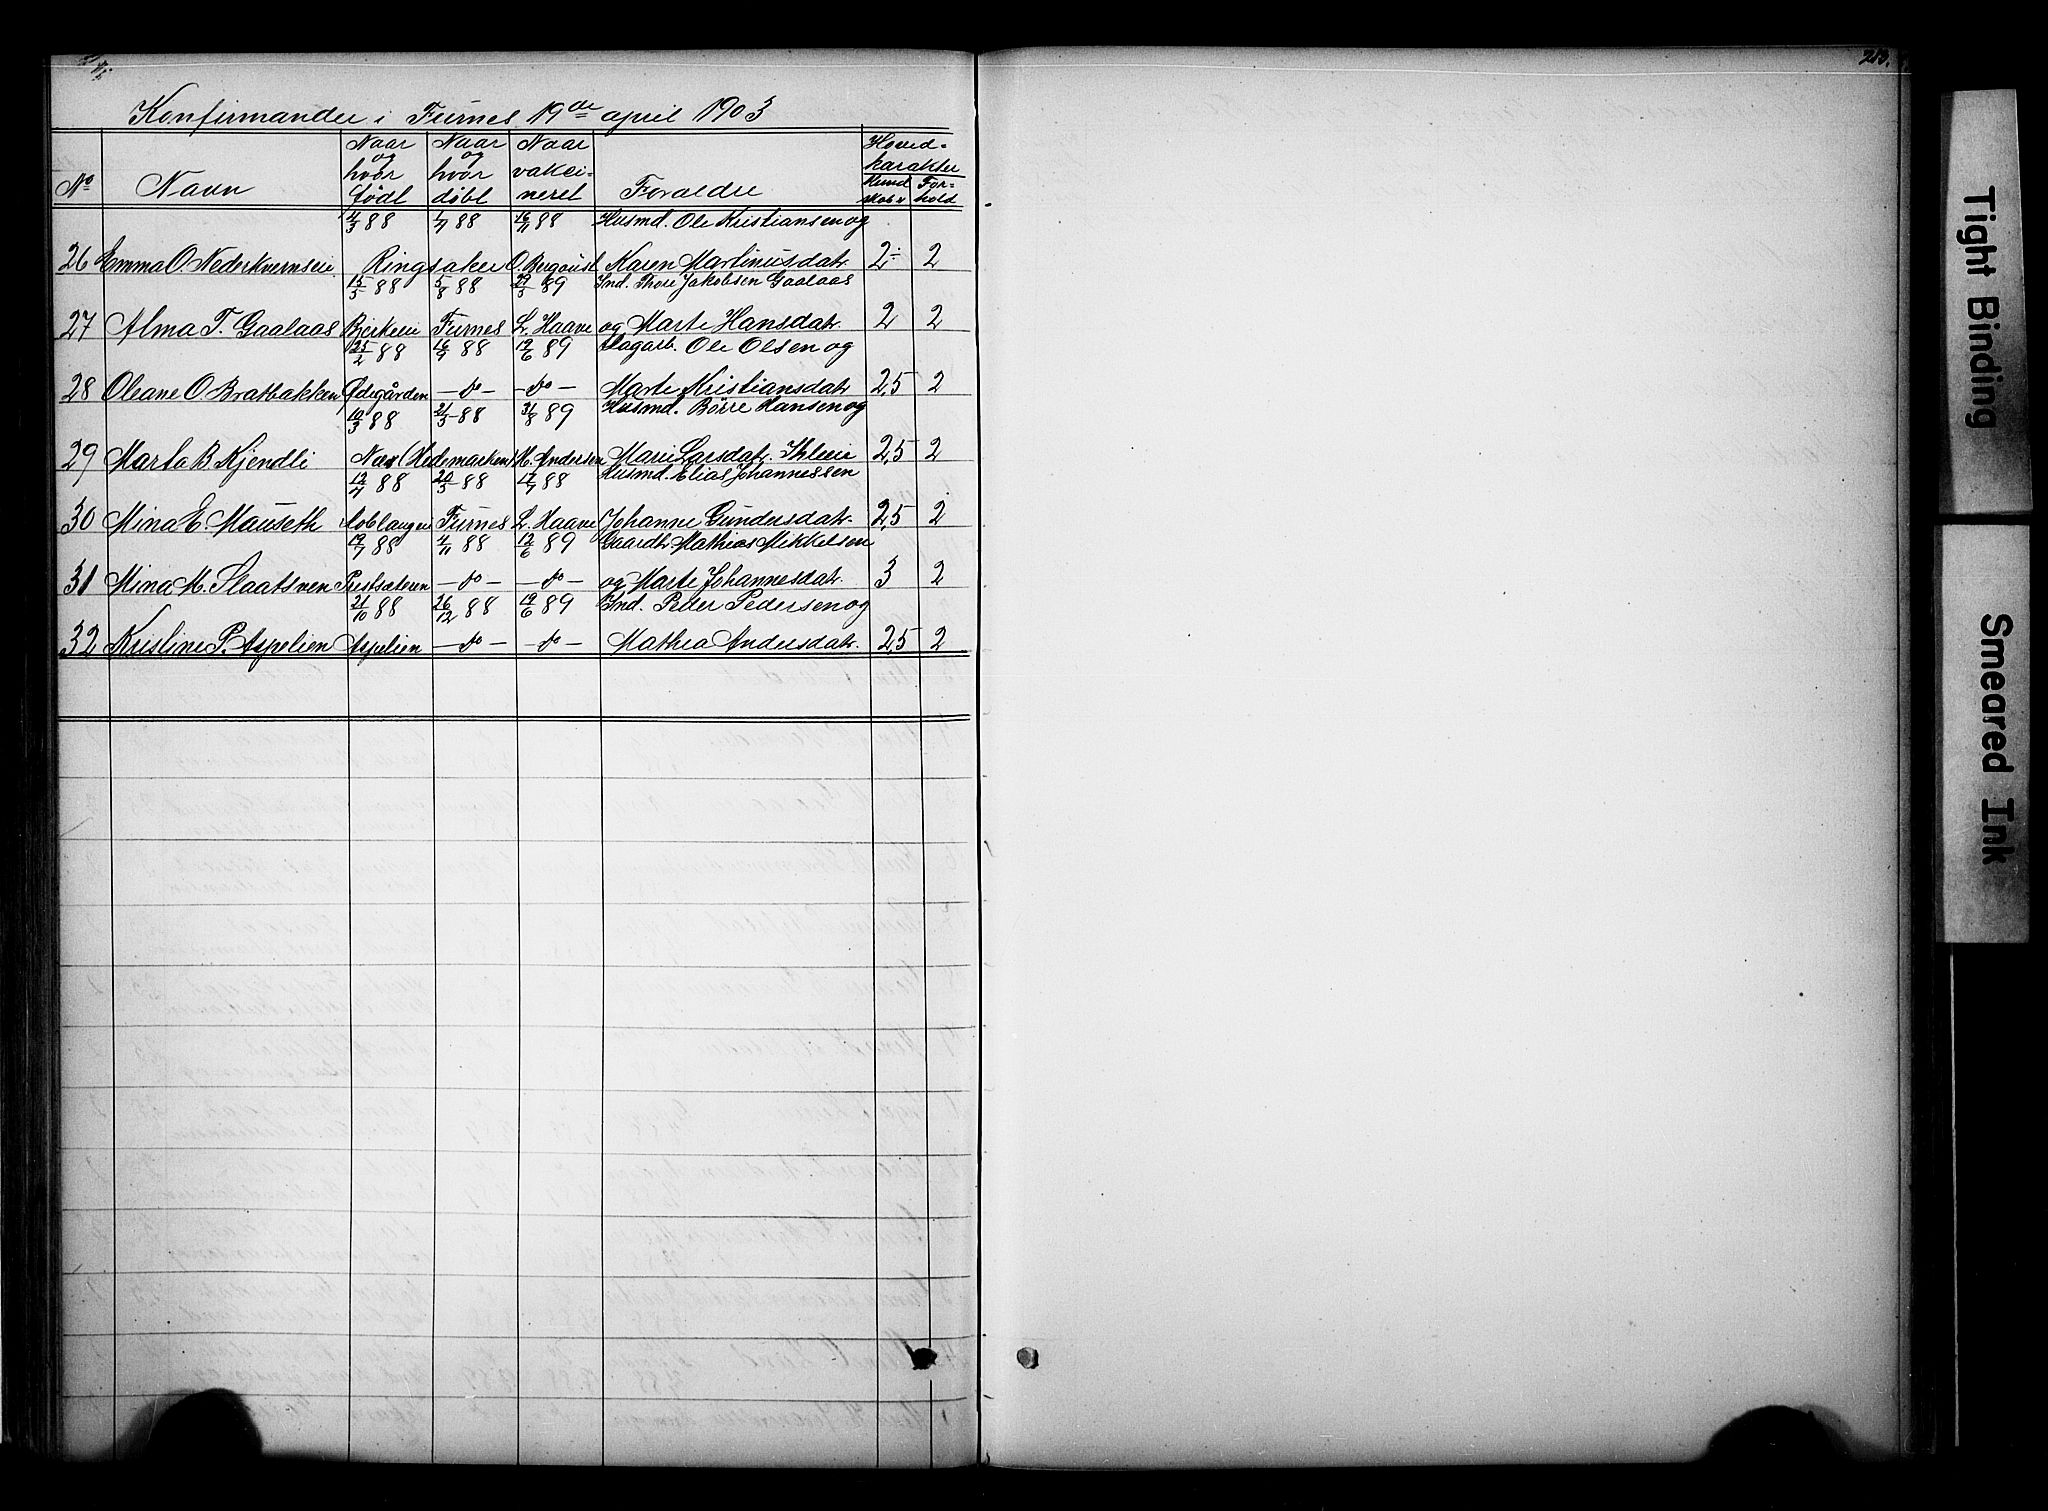 213.
Konfirmander i Furnes 19de april 1903
No Navn Naar og hvor födt Naar og hvor döbt Naar vakci- neret Foraeldre Hoved- karakter Kund skab For- hold
4/3 88 1/7 88 16/11 88 Husmd. Ole Kristiansen og
26 Emma O. Nederkvernseie Ringsaker O. Berqvist Karen Martinusdatr. 2÷ 2
15/5 88 5/8 88 29/5 89 Ind. Thore Jakobsen Gaalaas
27 Alma T. Gaalaas Bjerkeeie Furnes L. Haave og Marte Hansdatr. 2 2
25/2 88 16/7 88 12/6 89 Dagarb. Ole Olsen og
28 Oleane O Bratbakken Ödegården —do— —do— Marte Kristiansdatr 2,5 2
10/3 88 21/5 88 31/8 89 Husmd. Börre Hansen og
29 Marta B Kjendli Næs (Hedemarken) M. Andersen Marie Larsdatr. Ihleeie 2,5 2
12/4 88 20/5 88 17/7 88 Husmd. Elias Johannessen
30 Mina E. Mauseth Koblangen Furnes L. Haave Johanne Gundersdatr. 2,5 2
19/7 88 4/11 88 12/6 89 Gaardbr. Mathias Mikkelsen
31 Mina M. Slaatsveen Prestsæteren —do— —do— og Marte Johannesdatr. 3 2
21/10 88 26/12 88 12/6 89 Ind. Peder Pedersen og
32 Kristine P. Aspelien Aspelien —do— —do— Mathea Andersdatr. 2,5 2
Tight Binding
Smeared Ink